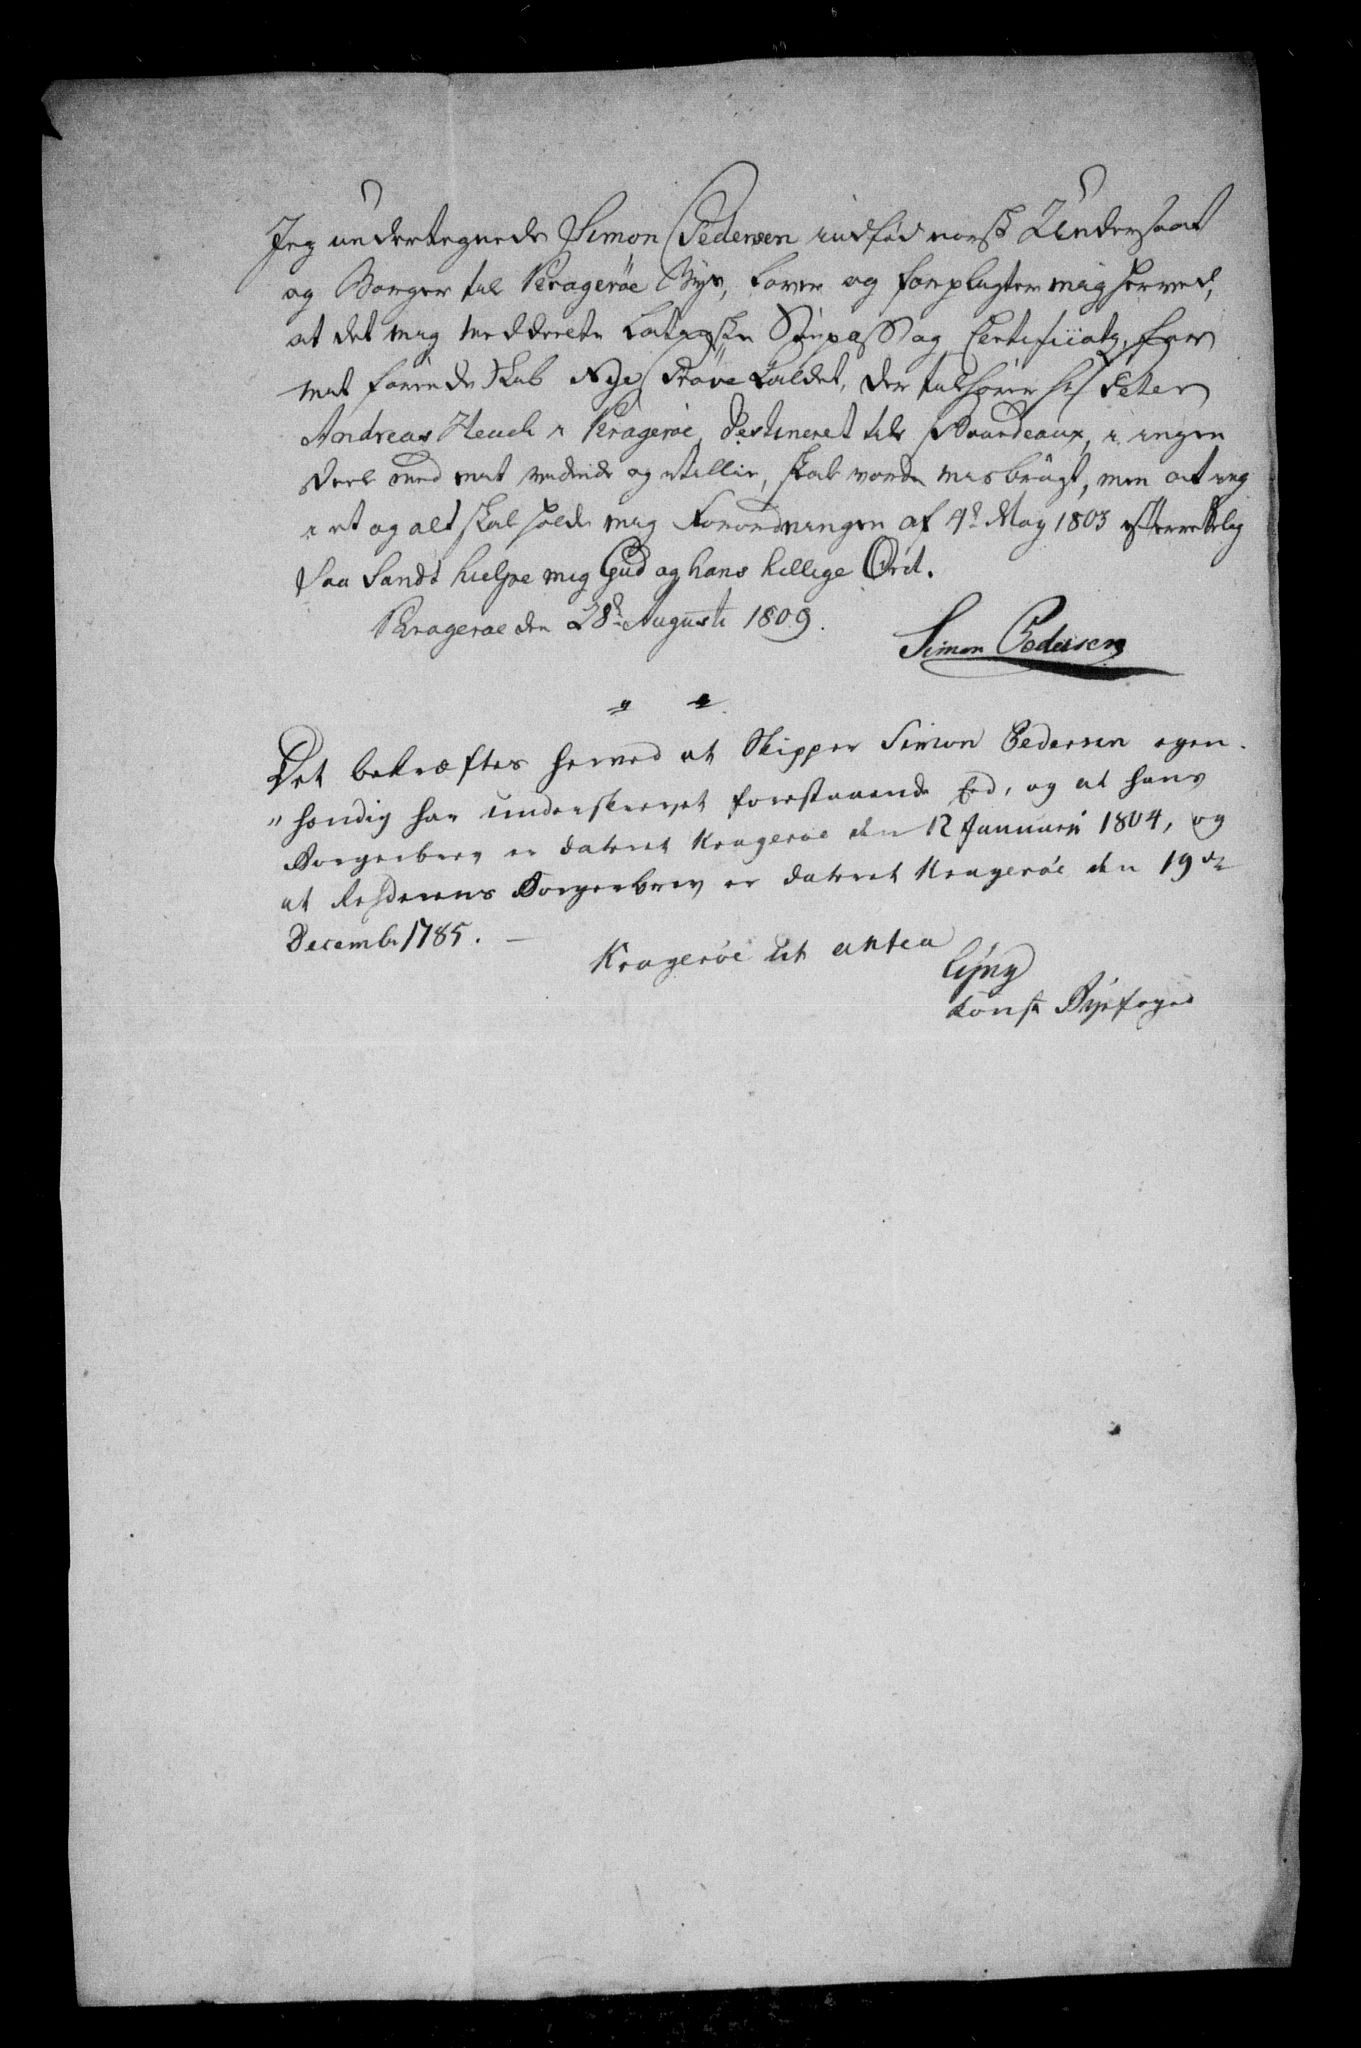 Jeg undertegnede Simon Pedersen indfød norsk Undersaat
og Borger til Kragerøe Bye, lover og forpligter mig herved,
at det mig meddeelte Latinske Søepass og Certificat, for
mit førende Skib Nye Prøve kaldet, der tilhører Hr Peter
Andreas Heuch i Kragerøe, destineret til Bourdeaux, i ingen
Deel med mit vidende og Villie, skal vorde misbrugt, men at jeg
i et og alt skal holde mig Forordningen af 4d May 1803 efterrettelig
saa Sandt hielpe mig Gud og hans hellige Ord.
Kragerøe den 28d Augusti 1809.
Simon Pedersen
Det bekræftes herved at Skipper Simon Pedersen egen-
" hændig har underskrevet forestaaende Eed, og at hans
Borgerbrev er dateret Kragerøe den 12 Januarii 1804, og
at Rhederens Borgerbrev er dateret Kragerøe den 19de
Decembr 1785. —
Kragerøe ut antea
Const Byefoged